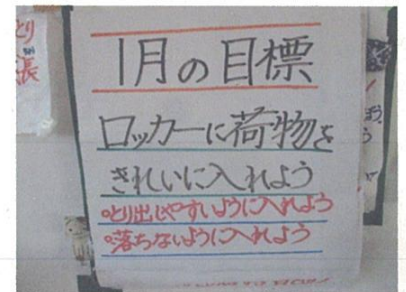 1月の目標
ロッカーに荷物を
きれいに入れよう
°とり出しやすいように入れよう
°落ちないように入れよう
とり
長